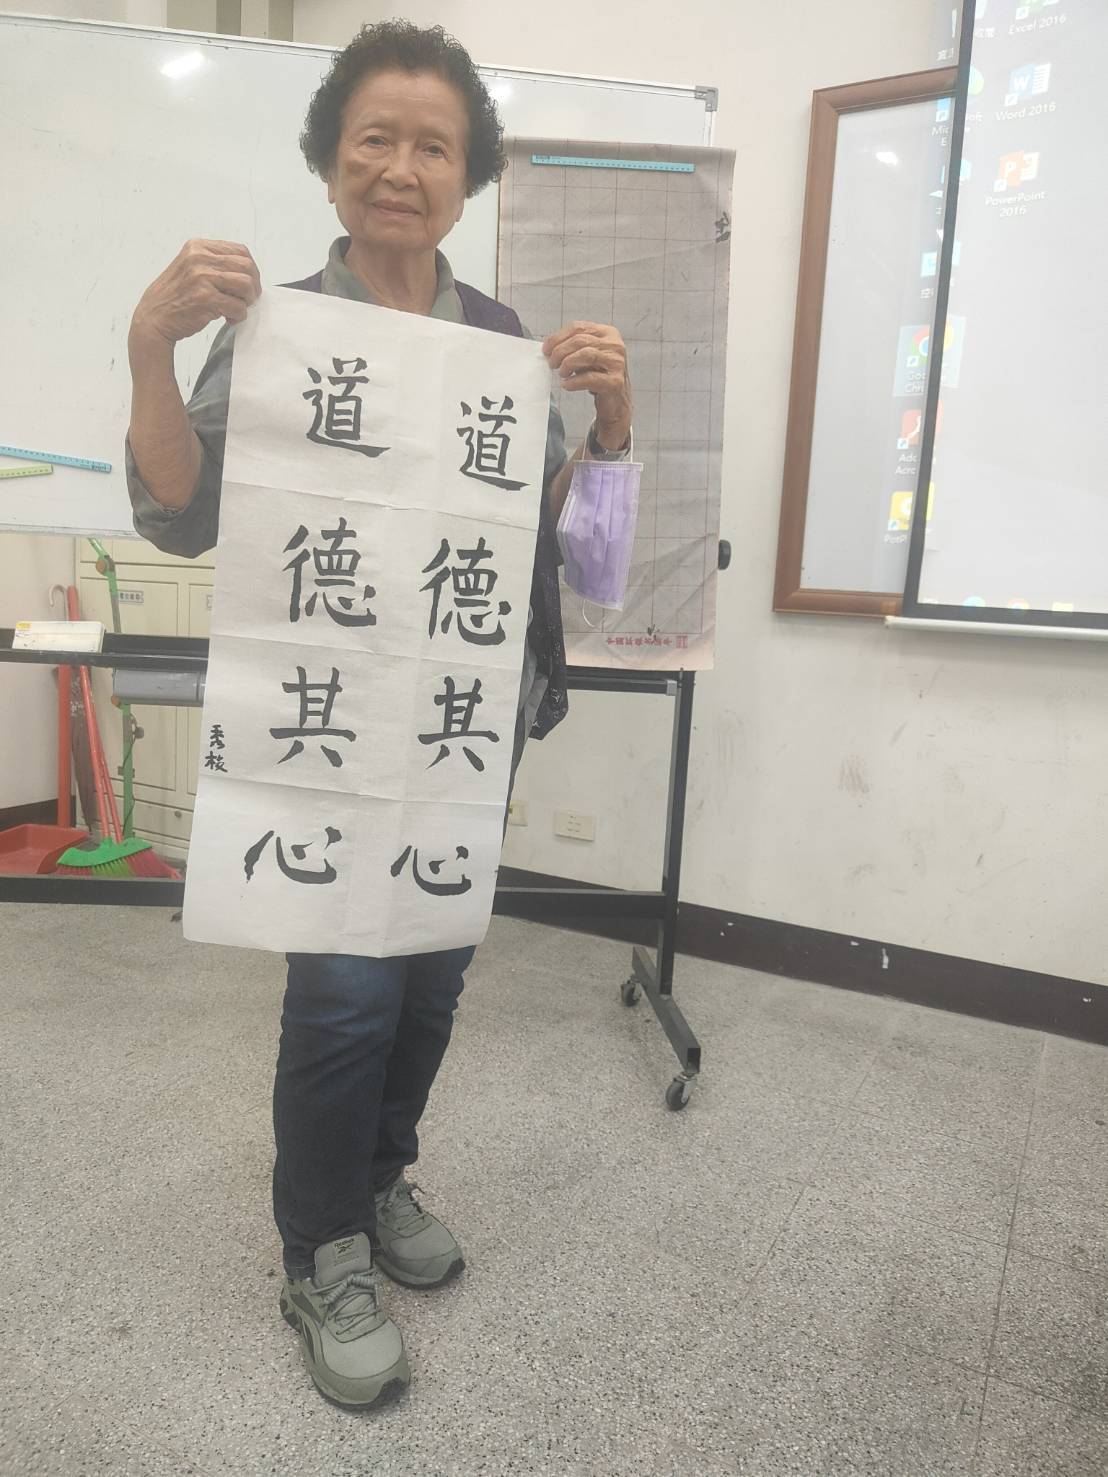 道德其心
道德其心
秀梭
Excel 2016
Word 2016
PowerPoint 2016
Reebok